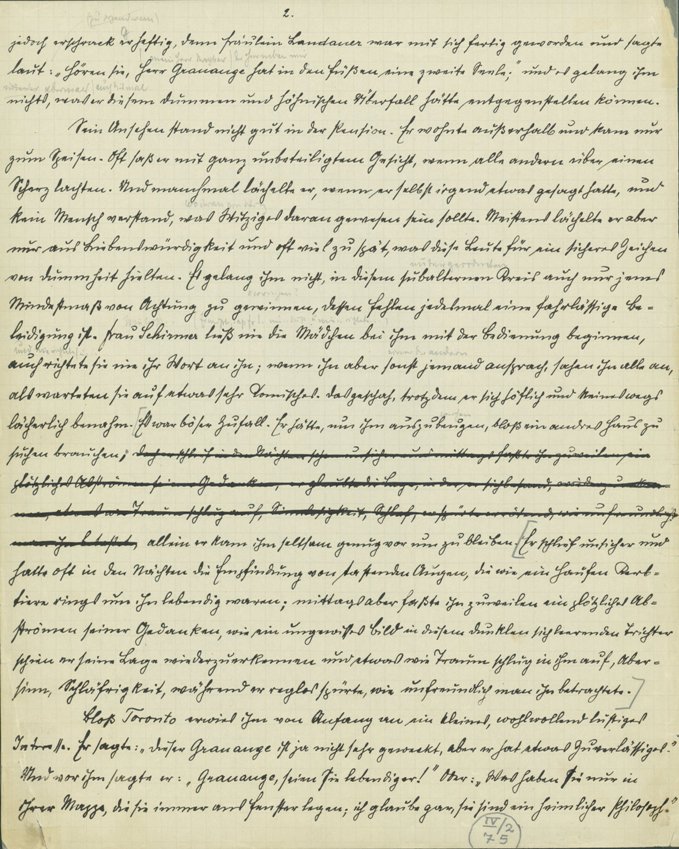 2.
jedoch erschrack er heftig, denn Fräulein Landauer war mit sich fertig geworden und sagte
laut: „Hören Sie, Herr Granauge hat in den Füßen, eine zweite Seele;“ und es gelang ihm
nichts, was er diesem dummen und höhnischen Überfall hätte, entgegenstellen können.
Sein Ansehen stand nicht gut in der Pension. Er wohnte außerhalb und kam nur
zum Speisen. Oft saß er mit ganz unbeteiligtem Gesicht, wenn alle andern über einen
Scherz lachten. Und manchmal lächelte er, wenn er selbst irgend etwas gesagt hatte, und
kein Mensch verstand, was Witziges daran gewesen sein sollte. Meistens lächelte er aber
nur aus Liebenswürdigkeit und oft viel zu spät, was diese Leute für ein sicheres Zeichen
von Dummheit hielten. Es gelang ihm nicht, in diesem subalternen Kreis auch nur jenes
Mindestmaß von Achtung zu gewinnen, dessen Fehlen jedesmal eine fahrlässige Be-
leidigung ist. Frau ließ nie die Mädchen bei ihm mit der Bedienung beginnen,
auch richtete sie nie ihr Wort an ihn; wenn ihn aber sonst jemand ansprach, sahen ihn alle an,
als warteten sie auf etwas sehr Komisches. Das geschah, trotzdem er sich höflich und keineswegs
lächerlich benahm. [Es war böser Zufall. Er hätte, um ihm auszubeugen, bloß ein andres Haus zu
suchen brauchen;
allein er kam ihm seltsam genug vor um zu bleiben. [Er schlief unsicher und
hatte oft in den Nächten die Empfindung von tastenden Augen, die wie ein Haufen Kerb-
tiere rings um ihn lebendig waren; mittags aber faßte ihn zuweilen ein plötzliches Ab-
strömen seiner Gedanken, wie ein ungewisses Bild in diesem dunklen sich leerenden Trichter
schien er seine Lage wiederzuerkennen und etwas wie Traum schlug in ihm auf, Aber-
sinn, Schläfrigkeit, während er reglos spürte, wie unfreundlich man ihn betrachtete.]
Bloß Toronto erwies ihm von Anfang an ein kleines, wohlwollend lustiges
Interesse. Er sagte: „Dieser Granauge ist ja nicht sehr geweckt, aber er hat etwas Zuverlässiges.“
Und vor ihm sagte er: „Granauge, seien Sie lebendiger!“ Oder: „Was haben Sie nur in
Ihrer Mappe, die Sie immer ans Fenster legen; ich glaube gar, Sie sind ein heimlicher Philosoph.“
IV/2
75